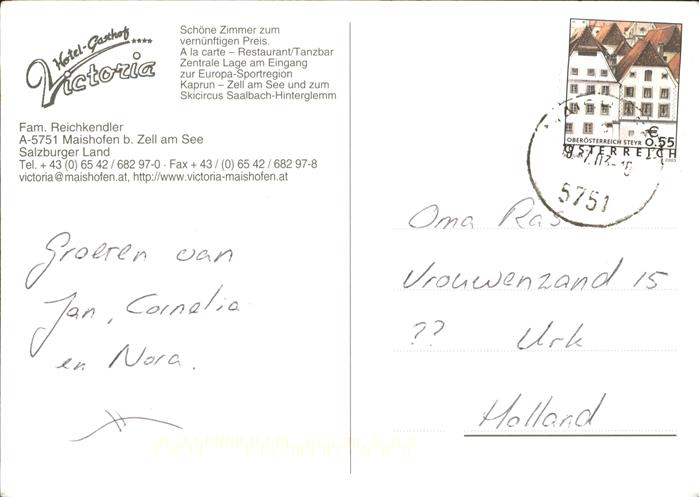 Hotel-Gasthof ****
Victoria
Schöne Zimmer zum
vernünftigen Preis.
A la carte – Restaurant/Tanzbar
Zentrale Lage am Eingang
zur Europa-Sportregion
Kaprun – Zell am See und zum
Skicircus Saalbach-Hinterglemm
Fam. Reichkendler
A-5751 Maishofen b. Zell am See
Salzburger Land
Tel. + 43 (0) 65 42 / 682 97-0 · Fax + 43 / (0) 65 42 / 682 97-8
victoria@maishofen.at, http://www.victoria-maishofen.at
Groeten van
Jan, Cornelia
en Nora.
€
0,55
OBERÖSTERREICH STEYR
ÖSTERREICH
2003
5751
Oma Ras
Vrouwenzand 15
?? Urk
Holland